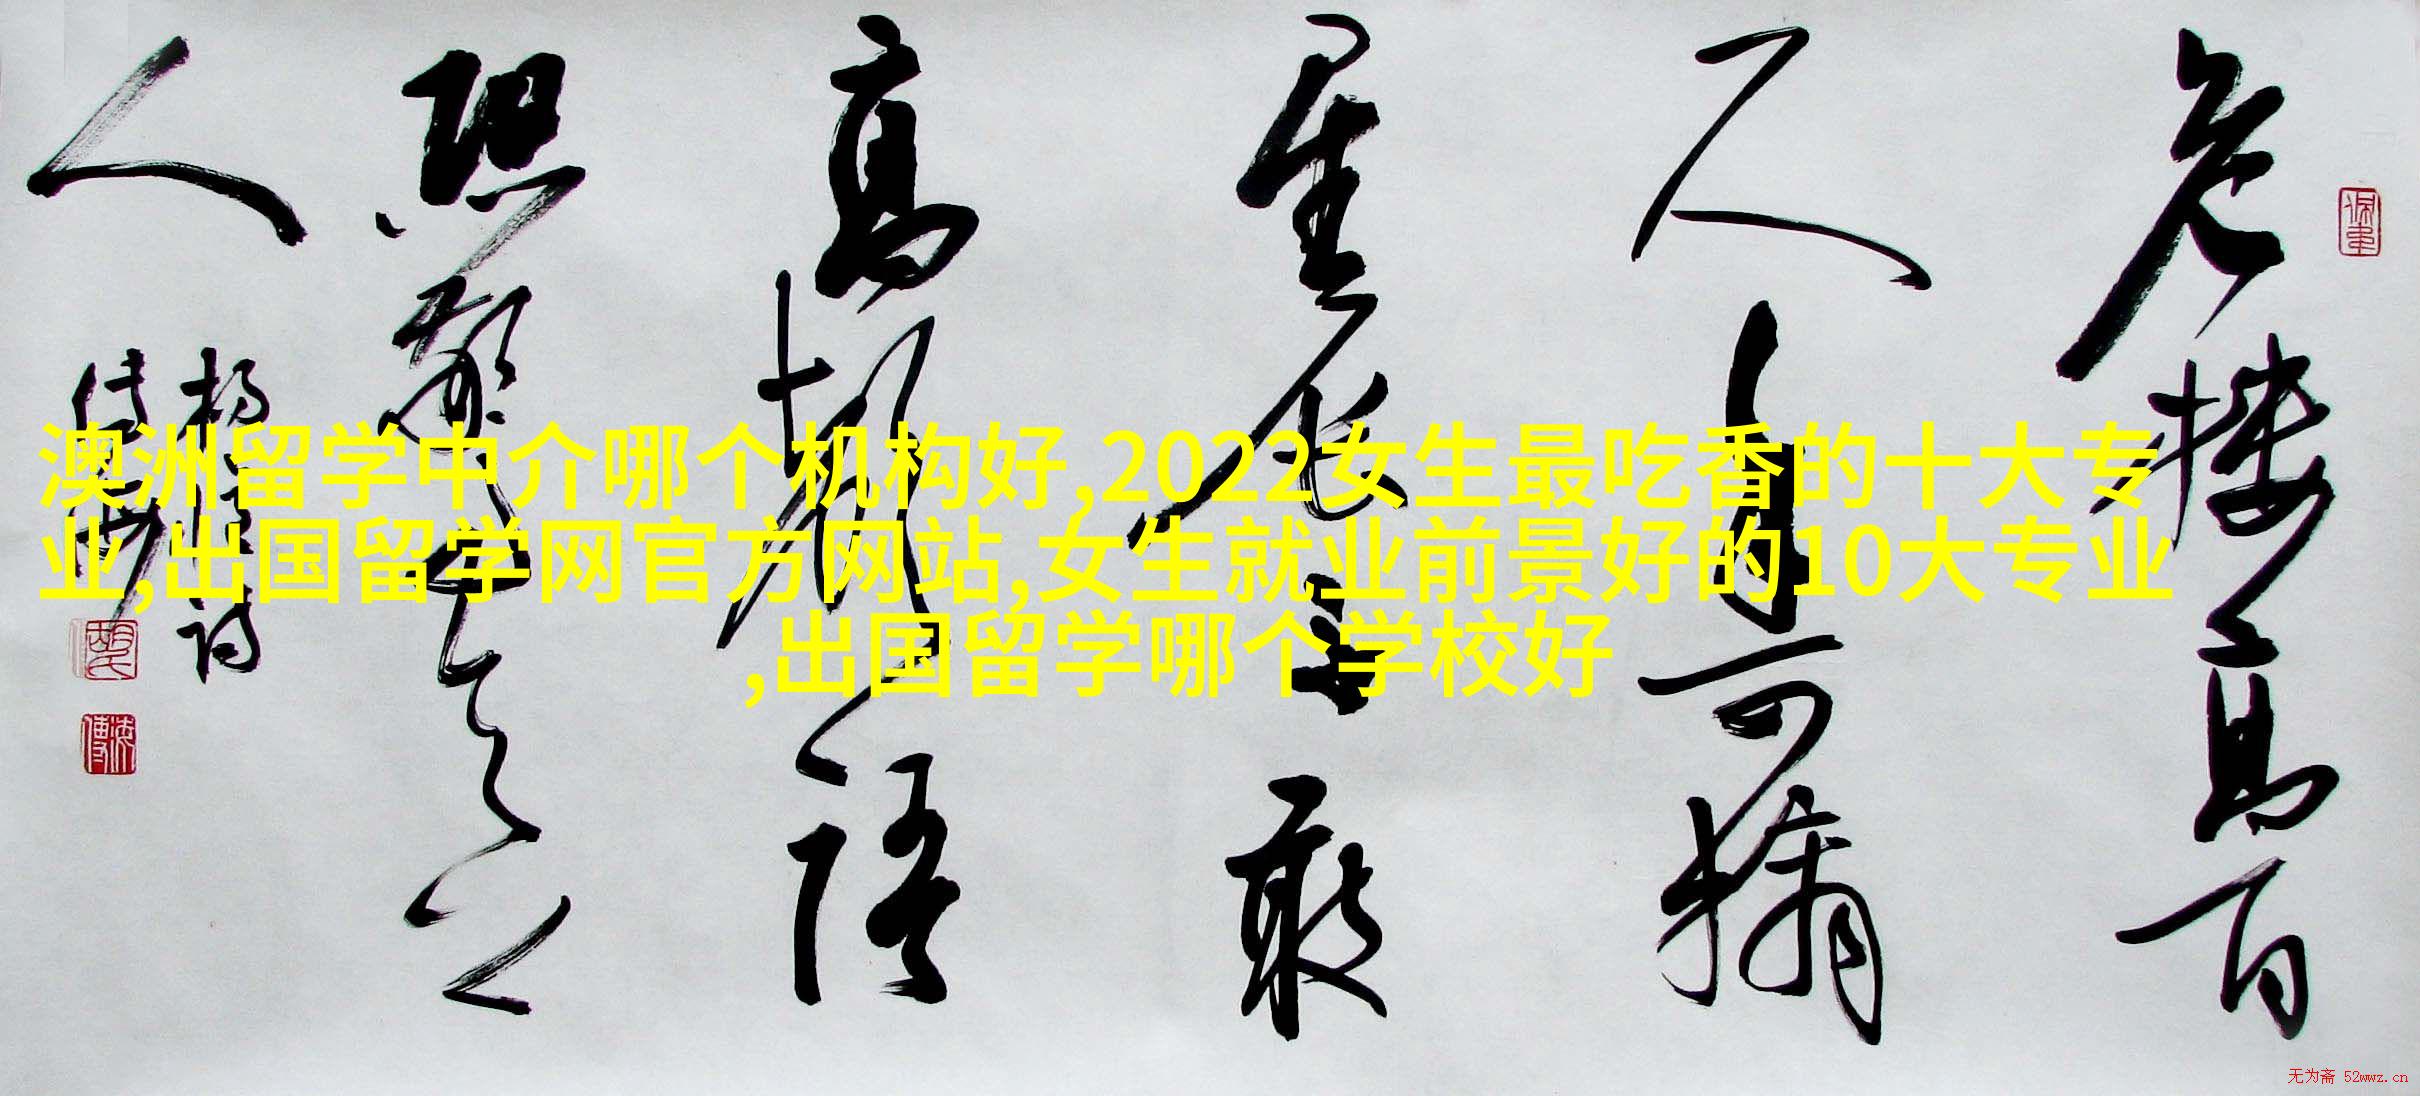 危樓高百
尺手可摘
星辰不敢
高聲語
恐驚天上
人
澳洲留学中介哪个机构好,2022女生最吃香的十大专
业,出国留学网官方网站,女生就业前景好的10大专业
,出国留学哪个学校好
无为斋 52wwz.cn